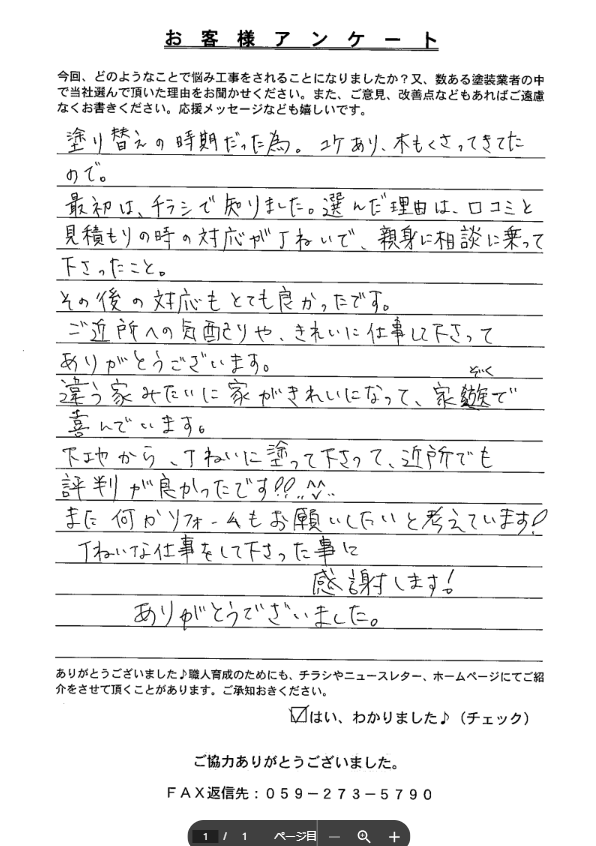 お客様アンケート
今回、どのようなことで悩み工事をされることになりましたか？又、数ある塗装業者の中
で当社選んで頂いた理由をお聞かせください。また、ご意見、改善点などもあればご遠慮
なくお書きください。応援メッセージなども嬉しいです。
塗り替えの時期だった為。コケあり、木もくさってきてた
ので。
最初は、チラシで知りました。選んだ理由は、口コミと
見積もりの時の対応が丁ねいで、親身に相談に乗って
下さったこと。
その後の対応もとても良かったです。
ご近所への気配りや、きれいに仕事して下さって
ありがとうございます。
違う家みたいに家がきれいになって、家族で
ぞく
喜んでいます。
下地から、丁ねいに塗って下さって、近所でも
評判が良かったです!!..^^..
また何かリフォームもお願いしたいと考えています!
丁ねいな仕事をして下さった事に
感謝します!
ありがとうございました。
ありがとうございました♪職人育成のためにも、チラシやニュースレター、ホームページにてご紹
介をさせて頂くことがあります。ご承知おきください。
☑はい、わかりました♪（チェック）
ご協力ありがとうございました。
ＦＡＸ返信先：０５９－２７３－５７９０
1 / 1 ページ目